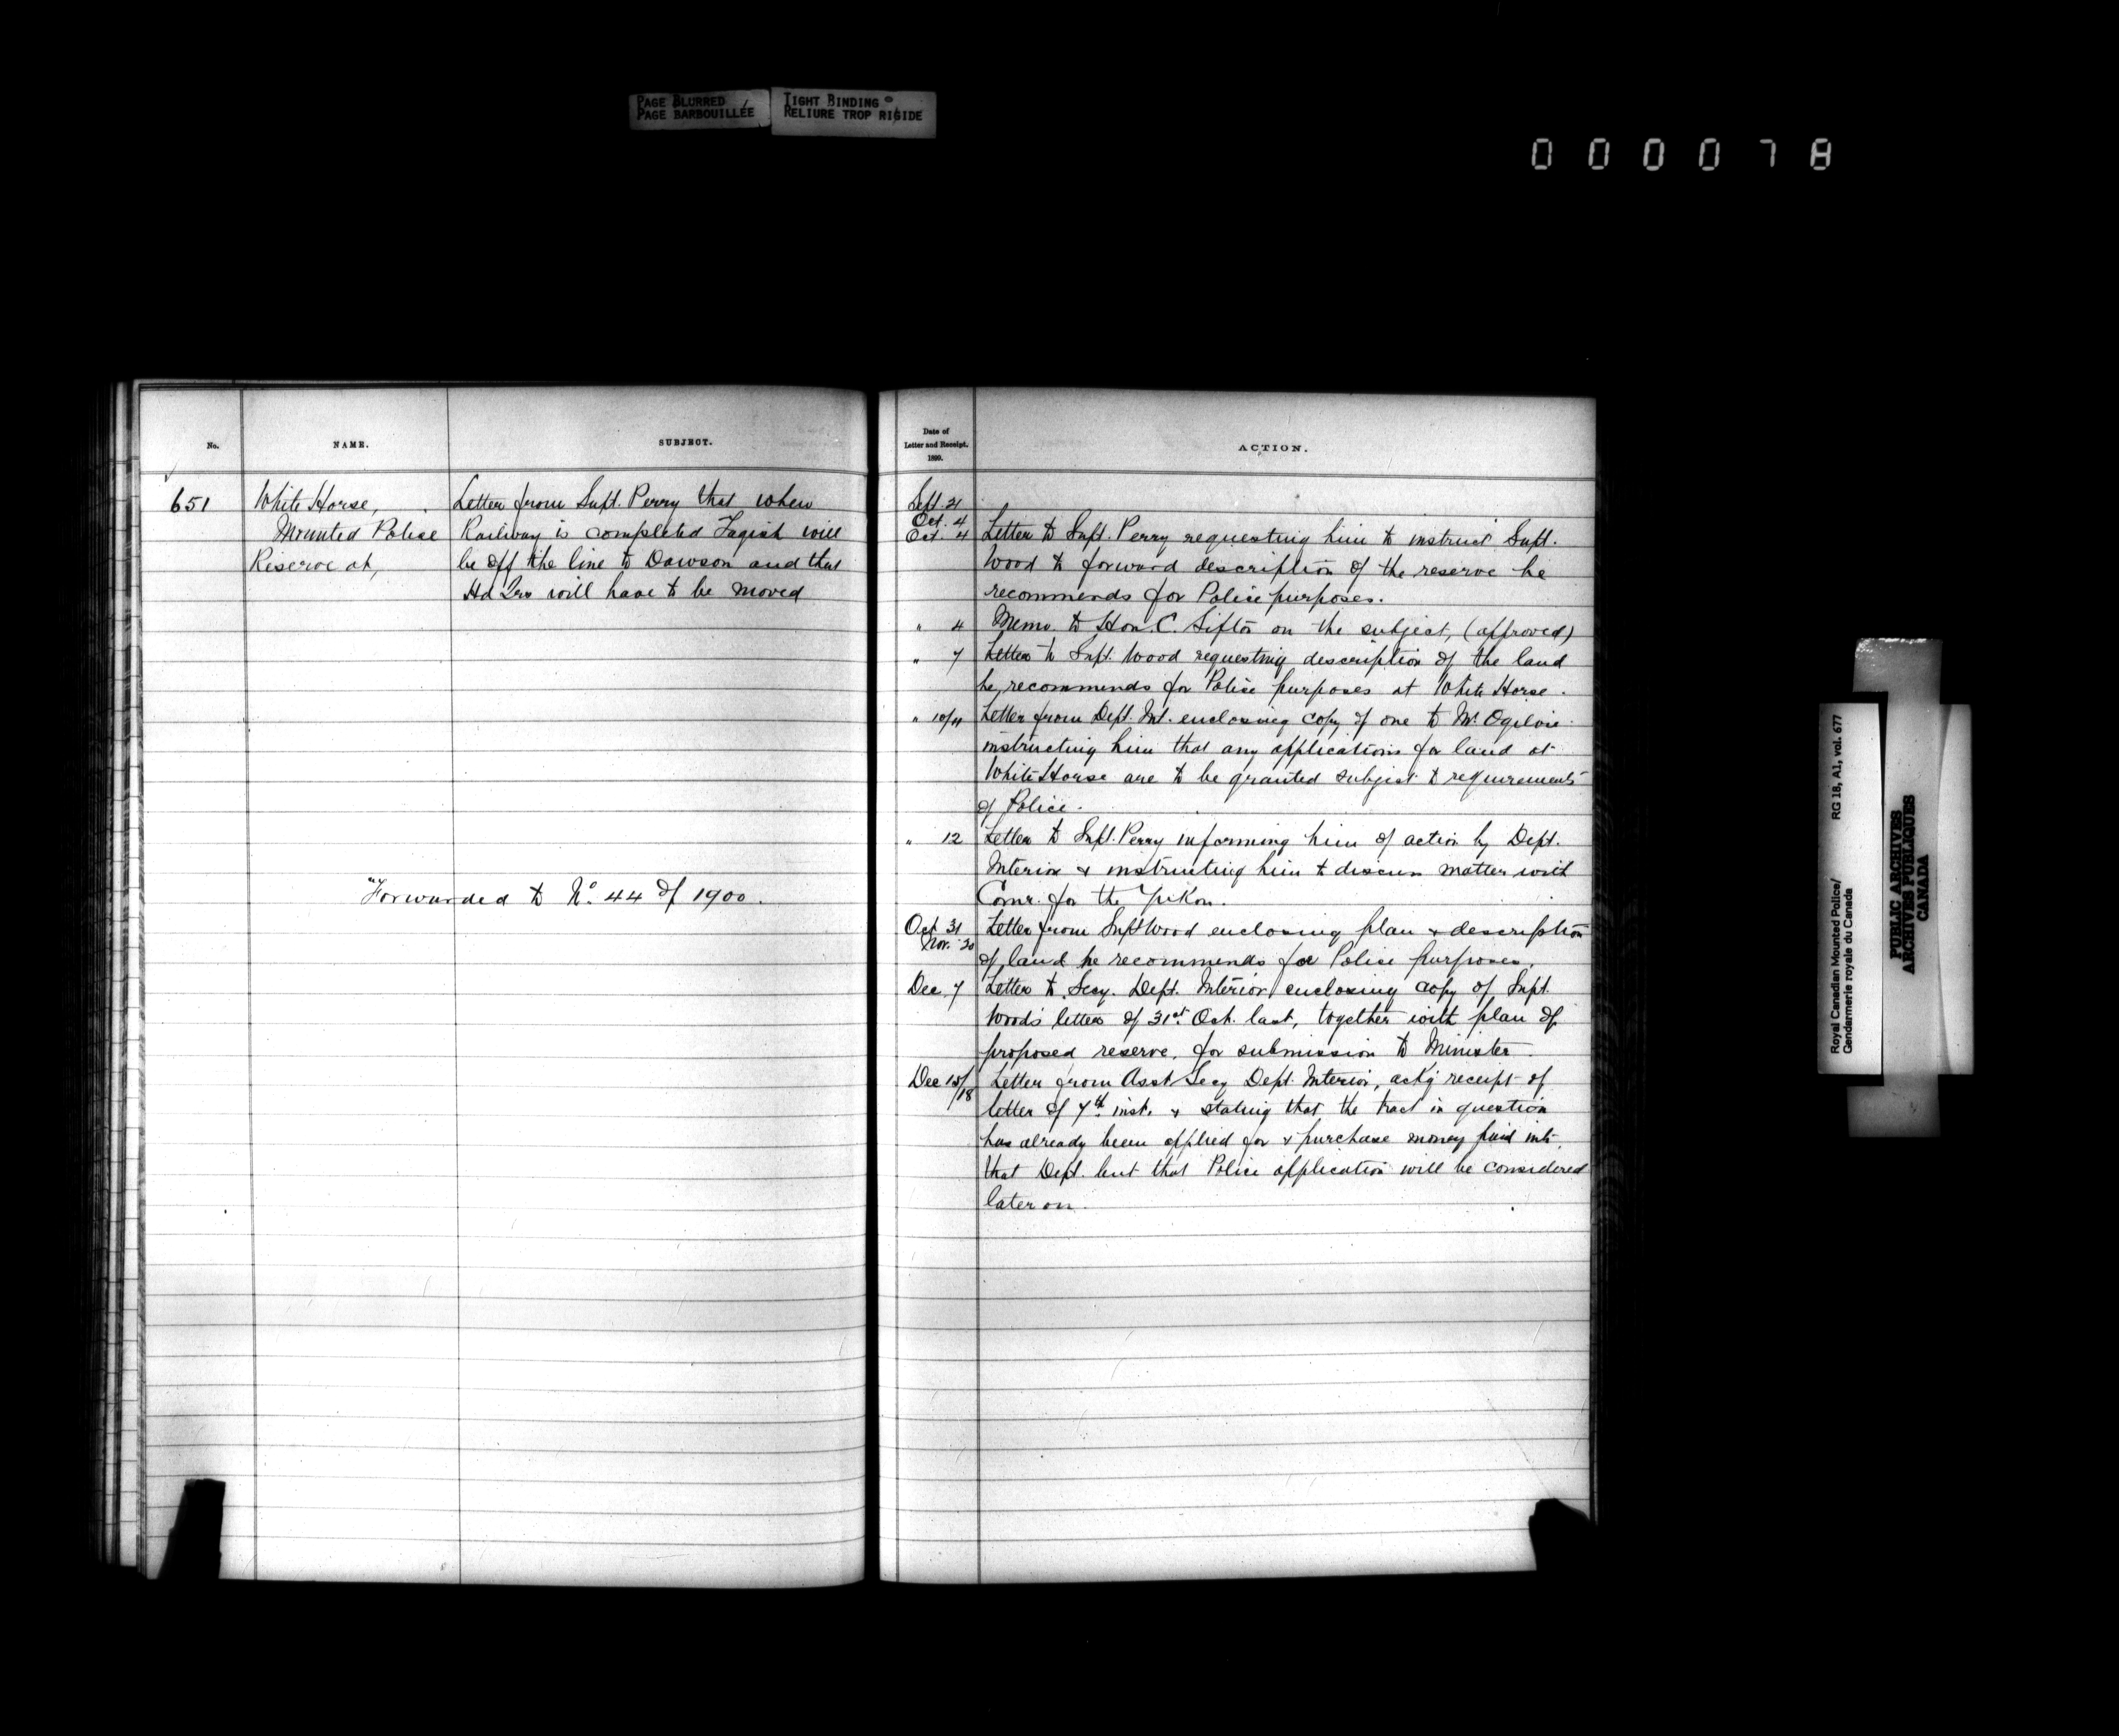 PAGE BLURRED
PAGE BARBOUILLÉE
TIGHT BINDING
RELIURE TROP RIGIDE
000078
No.
NAME.
SUBJECT.
Date of
Letter and Receipt.
1899.
ACTION.
651
White Horse,
Mounted Police
Reserve at,
Letter from Supt. Perry that when
Railway is completed Tagish will
be off the line to Dawson and that
Hd Qrs will have to be moved
"Forwarded to No. 44 of 1900.
Sept. 21
Oct. 4
Oct. 4 Letter to Supt. Perry requesting him to instruct Supt.
Wood to forward description of the reserve he
recommends for Police purposes.
" 4 Memo. to Hon. C. Sifton on the subject, (approved)
" 7 Letter to Supt. Wood requesting description of the land
he recommends for Police purposes at White Horse.
" 10/11 Letter from Dept. Int. enclosing copy of one to Mr. Ogilvie
instructing him that any applications for land at
White Horse are to be granted subject to requirements
of Police.
" 12 Letter to Supt. Perry informing him of action by Dept.
Interior & instructing him to discuss matter with
Comr. for the Yukon.
Oct 31 Letter from Supt Wood enclosing plan & description
Nov. 30 of land he recommends for Police purposes.
Dec 7 Letter to Secy. Dept. Interior enclosing copy of Supt.
Wood's letter of 31st. Oct. last, together with plan of
proposed reserve, for submission to Minister.
Dec 15/18 Letter from Asst Secy Dept. Interior, ackg receipt of
letter of 7th. inst. & stating that the tract in question
has already been applied for & purchase money paid into
that Dept. but that Police application will be considered
later on.
Royal Canadian Mounted Police/ RG 18, A1, vol. 677
Gendarmerie royale du Canada
PUBLIC ARCHIVES
ARCHIVES PUBLIQUES
CANADA